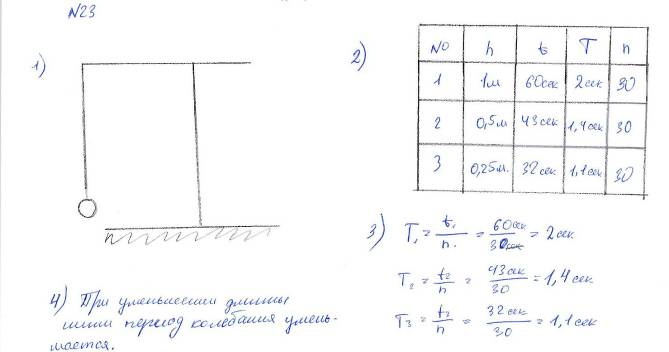 N23
1)
2)
№ h t T n
1 1м 60сек 2сек 30
2 0,5м 43сек 1,4сек 30
3 0,25м. 32сек 1,1сек 30
3) T₁ = t₁/n. = 60сек/30сек = 2сек
T₂ = t₂/n = 43сек/30 = 1,4сек
T₃ = t₃/n = 32сек/30 = 1,1сек
4) При уменьшении длины
нити период колебания умень-
шается.